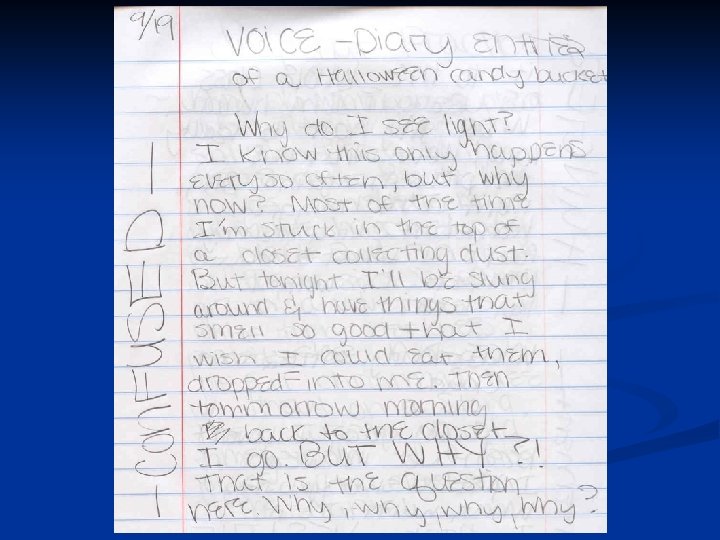 9/19
Voice - Diary entries
of a Halloween candy bucket
Why do I see light?
I know this only happens
every so often, but why
now? Most of the time
I'm stuck in the top of
a closet collecting dust.
But tonight I'll be slung
around & have things that
smell so good that I
wish I could eat them,
dropped into me. Then
tommorrow morning
back to the closet
I go. BUT WHY?!
That is the question
here. Why, why, why, why?
- CONFUSED -